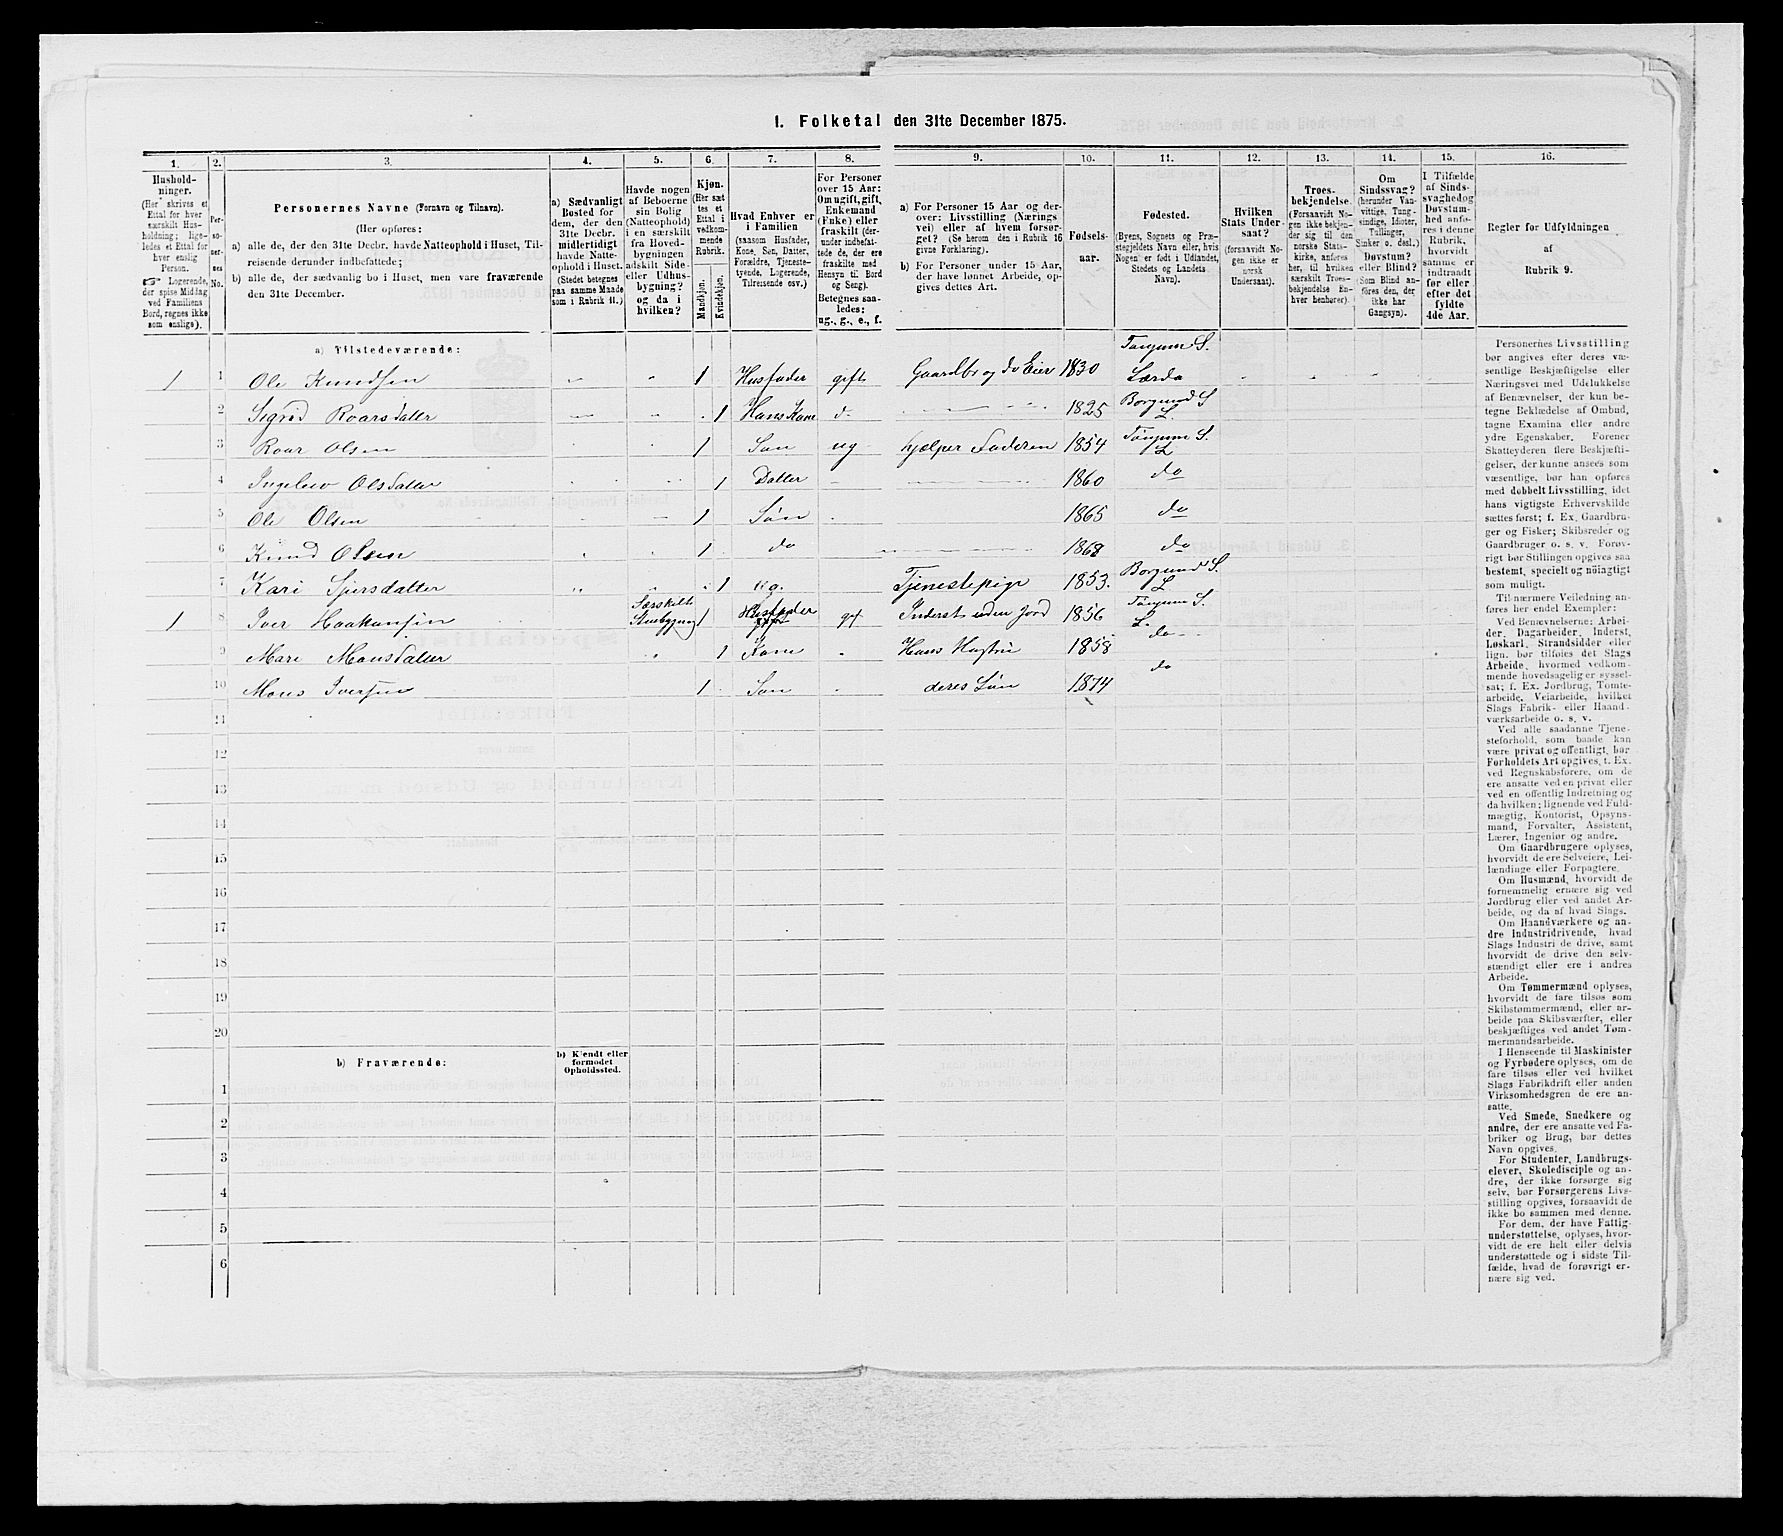 1. Folketal den 31te December 1875.
1.
2.
3.
4.
5.
6.
7.
8.
9.
10.
11.
12.
13.
14.
15.
16.
Hushold-
ninger.
(Her skrives et
Ettal for hver
særskilt Hus-
holdning; lige-
ledes et Ettal for
hver enslig
Person.
☞ Logerende,
der spise Middag
ved Familiens
Bord, regnes ikke
som enslige).
Per-
so-
ner-
nes
No.
Personernes Navne (Fornavn og Tilnavn).
(Her opføres:
a) alle de, der den 31te Decbr. havde Natteophold i Huset, Til-
reisende derunder indbefattede;
b) alle de, der sædvanlig bo i Huset, men vare fraværende
den 31te December.
a) Sædvanligt
Bosted for
dem, der den
31te Decbr.
midlertidigt
havde Natte-
ophold i Huset.
(Stedet betegnes
paa samme Maade
som i Rubrik 11.)
Havde nogen
af Beboerne
sin Bolig
(Natteophold)
i en særskilt
fra Hoved-
bygningen
adskilt Side-
eller Udhus-
bygning?
og da i
hvilken?
Kjøn.
(Her sæt-
tes et
Ettal i
vedkom-
mende
Rubrik.
Mandkjøn.
Kvindekjøn.
Hvad Enhver er
i Familien
(saasom Husfader,
Kone, Søn, Datter,
Forældre, Tjeneste-
tyende, Logerende,
Tilreisende osv.)
For Personer
over 15 Aar:
Om ugift, gift,
Enkemand
(Enke) eller
fraskilt (der-
under indbefat-
tede de, der ere
fraskilte med
Hensyn til Bord
og Seng).
Betegnes saa-
ledes:
ug., g., e., f.
a) For Personer 15 Aar og der-
over: Livsstilling (Nærings
vei) eller af hvem forsør-
get? (Se herom den i Rubrik 16
givne Forklaring).
b) For Personer under 15 Aar,
der have lønnet Arbeide, op-
gives dettes Art.
Fødsels-
aar.
Fødested.
(Byens, Sognets og Præ-
stegjeldets Navn eller, hvis
Nogen er født i Udlandet,
Stedets og Landets
Navn).
Hvilken
Stats Under-
saat?
(forsaavidt No-
gen ikke er
norsk
Undersaat).
Troes-
bekjendelse.
(Forsaavidt No-
gen ikke bekjen-
der sig til den
norske Stats-
kirke, anføres
her, til hvilken
særskilt Troes-
bekjendelse En-
hver henhører).
Om
Sindssvag?
(herunder Van-
vittige, Tung-
sindige, Idioter,
Tullinger,
Sinker o. desl.)
Døvstum?
eller Blind?
(Som Blind an-
føres den, der
ikke har
Gangsyn).
I Tilfælde
af Sinds-
svaghed og
Døvstum-
hed anfø-
res i denne
Rubrik,
hvorvidt
samme er
indtraadt
før eller
efter det
fyldte
4de Aar.
Regler for Udfyldningen
af
Rubrik 9.
a) Tilstedeværende:
1 1 Ole Knudsen 1 Husfader gift Gaardbr og do Eier 1830 Tønjum S. Lærda
2 Sigrid Roarsdatter 1 Hans Kone d- 1825 Borgund S L.
3 Roar Olsen 1 Søn ug hjælper Faderen 1854 Tønjum S. L
4 Ingeleiv Olsdatter 1 Datter 1860 do
5 Ole Olsen 1 Søn 1865 do
6 Knud Olsen 1 do 1868 do
7 Kari Sjursdatter 1 ug. Tjenestepige 1853. Borgund S. L
1 8 Iver Haakonsen Særskilt Stuebygning 1 Husfader gift Inderst uden Jord 1856 Tønjum S. L.
9 Mari Monsdatter 1 Kone Hans Hustru 1858 do
10 Mons Iversen 1 Søn deres Søn 1874 do
11
12
13
14
15
16
17
18
19
20
b) Fraværende:
b) Kjendt eller
formodet
Opholdssted.
1
2
3
4
5
6
Personernes Livsstilling
bør angives efter deres væ-
sentlige Beskjæftigelse eller
Næringsvei med Udelukkelse
af Benævnelser, der kun be-
tegne Beklædelse af Ombud,
tagne Examina eller andre
ydre Egenskaber. Forener
Skatteyderen flere Beskjæfti-
gelser, der kunne ansees som
væsentlige, bør han opføres
med dobbelt Livsstilling, idet
hans vigtigste Erhvervskilde
sættes først; f. Ex. Gaardbru-
ger og Fisker; Skibsreder og
Gaardbruger o. s. v. Forøv-
rigt bør Stillingen opgives saa
bestemt, specielt og nöiagtigt
som muligt.
Til nærmere Veiledning an-
føres her endel Exempler:
Ved Benævnelserne: Arbei-
der, Dagarbeider, Inderst,
Løskarl, Strandsidder eller
lign. bør tilføies det Slags
Arbeide, hvormed vedkom-
mende hovedsagelig er syssel-
sat; f. Ex. Jordbrug, Tomte-
arbeide, Veiarbeide, hvilket
Slags Fabrik- eller Haand-
værksarbeide o. s. v.
Ved alle saadanne Tjene-
steforhold, som baade kan
være privat og offentligt, bør
Forholdets Art opgives, f. Ex.
ved Regnskabsførere, om de
ere ansatte ved en privat eller
ved en offentlig Indretning og
da hvilken; lignende ved Fuld-
mægtig, Kontorist, Opsyns-
mand, Forvalter, Assistent,
Lærer, Ingeniør og andre.
Om Gaardbrugere oplyses,
hvorvidt de ere Selveiere, Lei-
lændinge eller Forpagtere.
Om Husmænd, hvorvidt de
fornemmelig ernære sig ved
Jordbrug eller ved andet Ar-
beide, og da af hvad Slags.
Om Haandværkere og an-
dre Industridrivende, hvad
Slags Industri de drive, samt
hvorvidt de drive den selv-
stændigt eller ere i andres
Arbeide.
Om Tømmermænd oplyses,
hvorvidt de fare tilsøs som
Skibstømmermænd, eller ar-
beide paa Skibsværfter, eller
beskjæftiges ved andet Tøm-
mermandsarbeide.
I Henseende til Maskinister
og Fyrbødere oplyses, om de
fare tilsøs eller ved hvilket
Slags Fabrikdrift eller anden
Virksomhedsgren de ere an-
satte.
Ved Smede, Snedkere og
andre, der ere ansatte ved Fa-
briker og Brug, bør dettes
Navn opgives.
For Studenter, Landbrugs-
elever, Skoledisciple og an-
dre, der ikke forsørge sig
selv, bør Forsørgerens Livs-
stilling opgives, forsaavidt de
ikke bo sammen med denne.
For dem, der have Fattig-
understøttelse, oplyses, hvor-
vidt de ere helt eller delvis
understøttede og i sidste Til-
fælde, hvad de forøvrigt er-
nære sig ved.